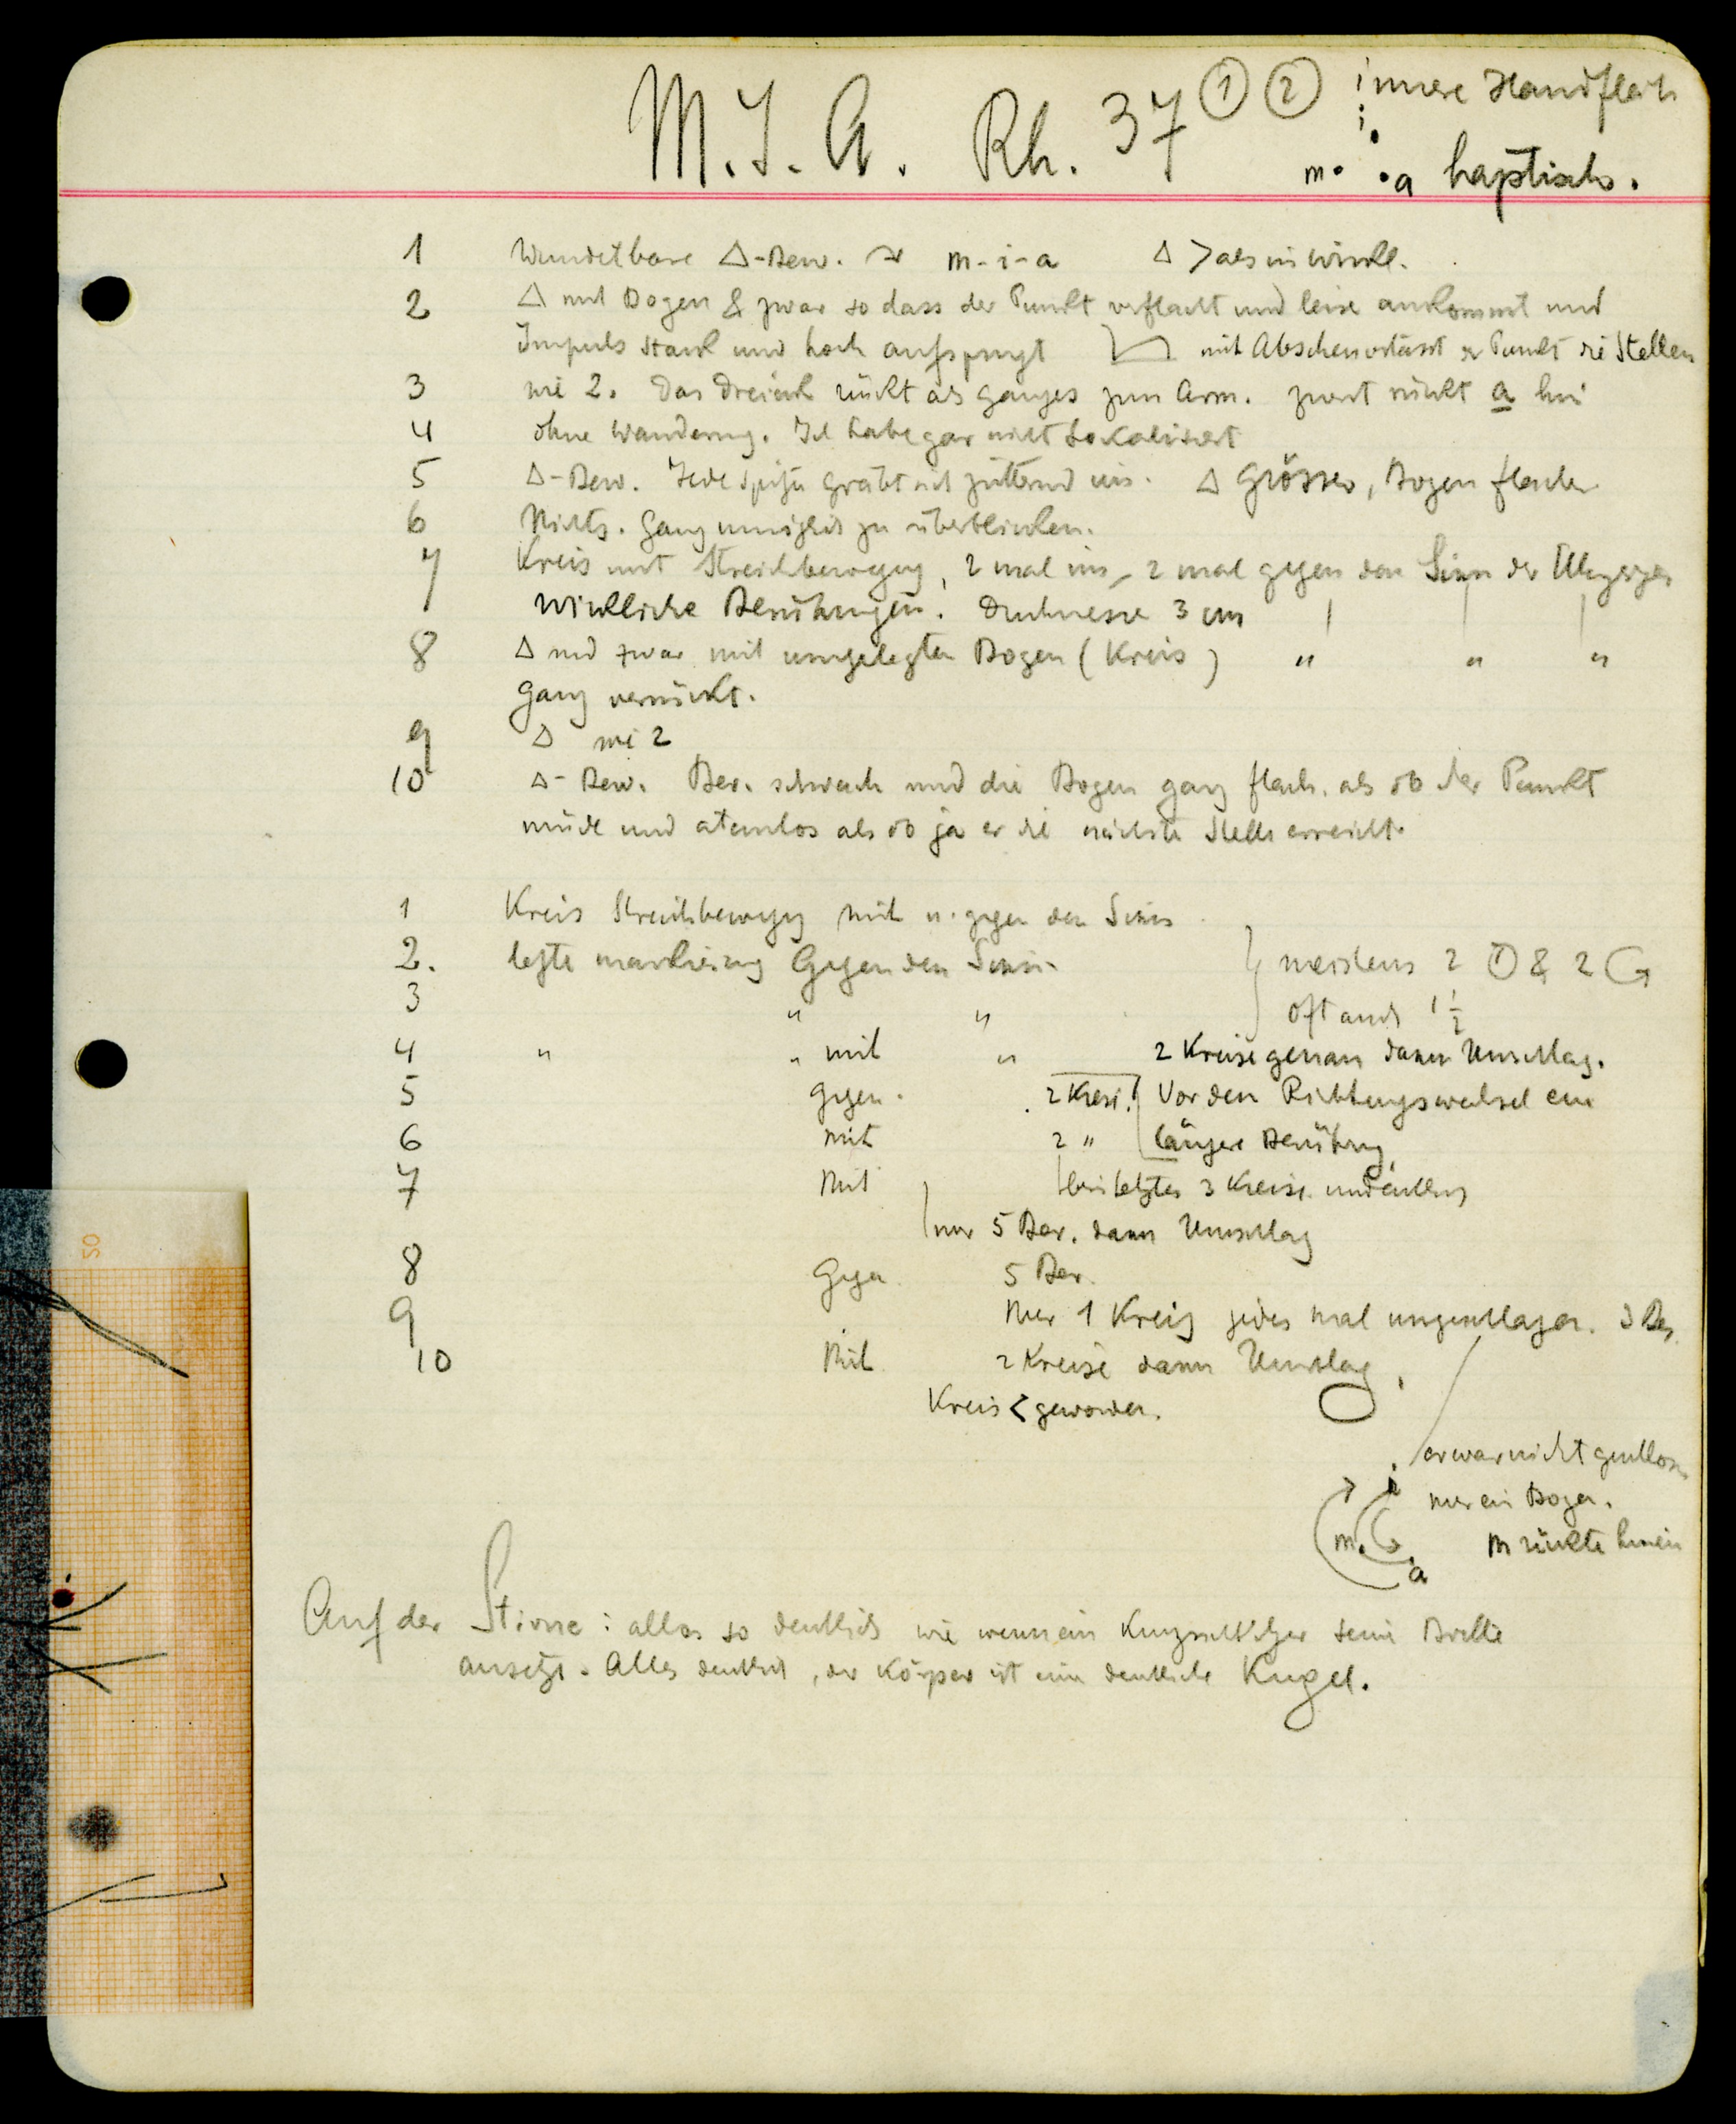 M. I. A. Rh. 37 ① ② innere Handfläch
i
m a haptisch.
1 Wunderbare △-Bew. m-i-a △ > als in Wirkl.
2 △ mit Bogen & zwar so dass der Punkt verflacht und leise ankommt und
Impuls stark und hoch aufspringt mit Abscheu verlässt der Punkt die Stellen
3 wie 2. Das Dreieck rückt als ganzes zum Arm. zuerst rückt a hin
4 ohne Wanderung. Ich habe gar nicht lokalisiert
5 △-Bew. Jede Spitze gräbt sich zitternd ein. △ Grösser, Bogen flacher
6 Nichts. Ganz unmöglich zu überblicken.
7 Kreis mit Streichbewegung, 2 mal im, 2 mal gegen den Sinn der Uhrzeiger
Wirkliche Berührungen. 3 cm
8 △ und zwar mit umgelegten Bogen (Kreis) " " "
Ganz verrückt.
9 △ wie 2
10 △-Bew. Ber. schwach und die Bogen ganz flach. als ob der Punkt
müde und atemlos als ob ja er die nächste Stelle erreicht.
1 Kreis Streichbewegung mit u. gegen den Sinn
2. letzte markierung Gegen den Sinn. meistens 2 & 2
3 " " oft auch 1 1/2
4 " " mit " 2 Kreise genau dann Umschlag.
5 gegen. 2 Kreise. Vor den Richtungswechsel eine
6 mit 2 " längere Berührung
7 Mit beim letzten 3 Kreise undeutlich
nur 5 Ber. dann Umschlag
8 Gegen 5 Ber.
9 Nur 1 Kreis jedes mal umgeschlagen. 3 Ber.
10 Mit 2 Kreise dann Umschlag
Kreis < geworden.
er war nicht geschlossen
i nur ein Bogen.
m. m rückte hinein
a
Auf der Stirne: alles so deutlich wie wenn ein Kurzsichtiger seine Brille
ansetzt. Alles deutlich, der Körper ist eine deutliche Kugel.
50